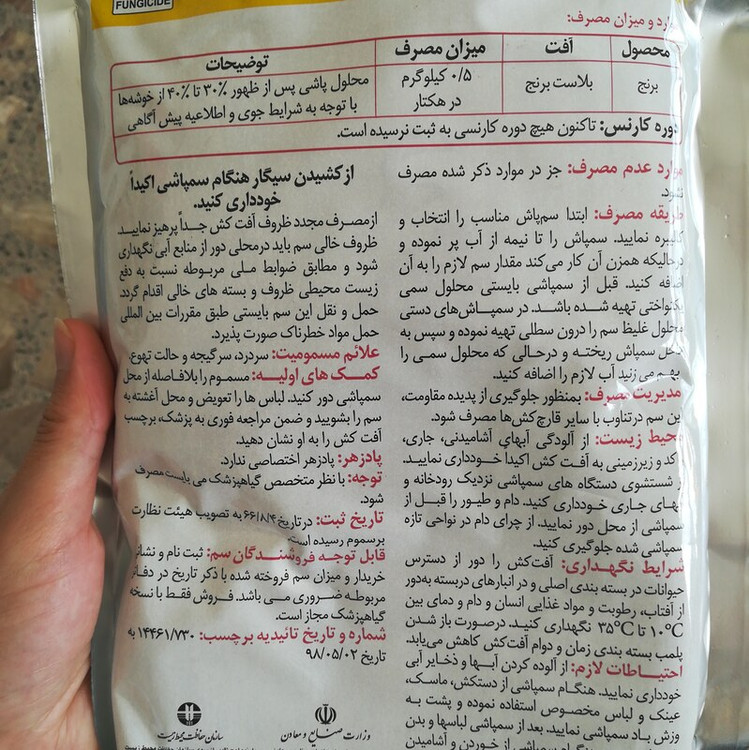 FUNGICIDE
ارد و میزان مصرف:
محصول آفت میزان مصرف توضیحات
برنج بلاست برنج ۰/۵ کیلوگرم در هکتار محلول پاشی پس از ظهور ۳۰٪ تا ۴۰٪ از خوشه‌ها
با توجه به شرایط جوی و اطلاعیه پیش آگاهی
دوره کارنس: تاکنون هیچ دوره کارنسی به ثبت نرسیده است.
موارد عدم مصرف: جز در موارد ذکر شده مصرف
نشود.
طریقه مصرف: ابتدا سم‌پاش مناسب را انتخاب و
کالیبره نمایید. سمپاش را تا نیمه از آب پر نموده و
درحالیکه همزن آن کار می‌کند مقدار سم لازم را به آن
اضافه کنید. قبل از سمپاشی بایستی محلول سمی
یکنواختی تهیه شده باشد. در سمپاش‌های دستی
محلول غلیظ سم را درون سطلی تهیه نموده و سپس به
داخل سمپاش ریخته و درحالی که محلول سمی را
بهم می زنید آب لازم را اضافه کنید.
مدیریت مصرف: بمنظور جلوگیری از پدیده مقاومت،
این سم درتناوب با سایر قارچ‌کش‌ها مصرف شود.
محیط زیست: از آلودگی آبهای آشامیدنی، جاری،
راکد و زیرزمینی به آفت کش اکیدا خودداری نمایید.
از شستشوی دستگاه های سمپاشی نزدیک رودخانه و
آبهای جاری خودداری کنید. دام و طیور را قبل از
سمپاشی از محل دور نمایید. از چرای دام در نواحی تازه
سمپاشی شده جلوگیری کنید.
شرایط نگهداری: آفت‌کش را دور از دسترس
حیوانات در بسته بندی اصلی و در انبارهای دربسته به‌دور
از آفتاب، رطوبت و مواد غذایی انسان و دام و دمای بین
۱۰°C تا ۳۵°C نگهداری کنید. درصورت باز شدن
پلمب بسته بندی زمان و دوام آفت‌کش کاهش می‌یابد.
احتیاطات لازم: از آلوده کردن آبها و ذخایر آبی
خودداری نمایید. هنگام سمپاشی از دستکش، ماسک،
عینک و لباس مخصوص استفاده نموده و پشت به
وزش باد سمپاشی نمایید. بعد از سمپاشی لباسها و بدن
سمپاشی از خوردن و آشامیدن
از کشیدن سیگار هنگام سمپاشی اکیداً
خودداری کنید.
ازمصرف مجدد ظروف آفت کش جداً پرهیز نمایید.
ظروف خالی سم باید درمحلی دور از منابع آبی نگهداری
شود و مطابق ضوابط ملی مربوطه نسبت به دفع
زیست محیطی ظروف و بسته های خالی اقدام گردد.
حمل و نقل این سم بایستی طبق مقررات بین المللی
حمل مواد خطرناک صورت پذیرد.
علائم مسمومیت: سردرد، سرگیجه و حالت تهوع.
کمک های اولیه: مسموم را بلافاصله از محل
سمپاشی دور کنید. لباس ها را تعویض و محل آغشته به
سم را بشویید و ضمن مراجعه فوری به پزشک، برچسب
آفت کش را به او نشان دهید.
پادزهر: پادزهر اختصاصی ندارد.
توجه: با نظر متخصص گیاهپزشک می بایست مصرف
شود.
تاریخ ثبت: درتاریخ ۶۶/۸/۴ به تصویب هیئت نظارت
برسموم رسیده است.
قابل توجه فروشندگان سم: ثبت نام و نشانی
خریدار و میزان سم فروخته شده با ذکر تاریخ در دفاتر
مربوطه ضروری می باشد. فروش فقط با نسخه
گیاهپزشک مجاز است.
شماره و تاریخ تائیدیه برچسب: ۱۴۴۶۱/۷۳۰ به
تاریخ ۹۸/۰۵/۰۲
وزارت صنایع و معادن
سازمان حفاظت محیط زیست